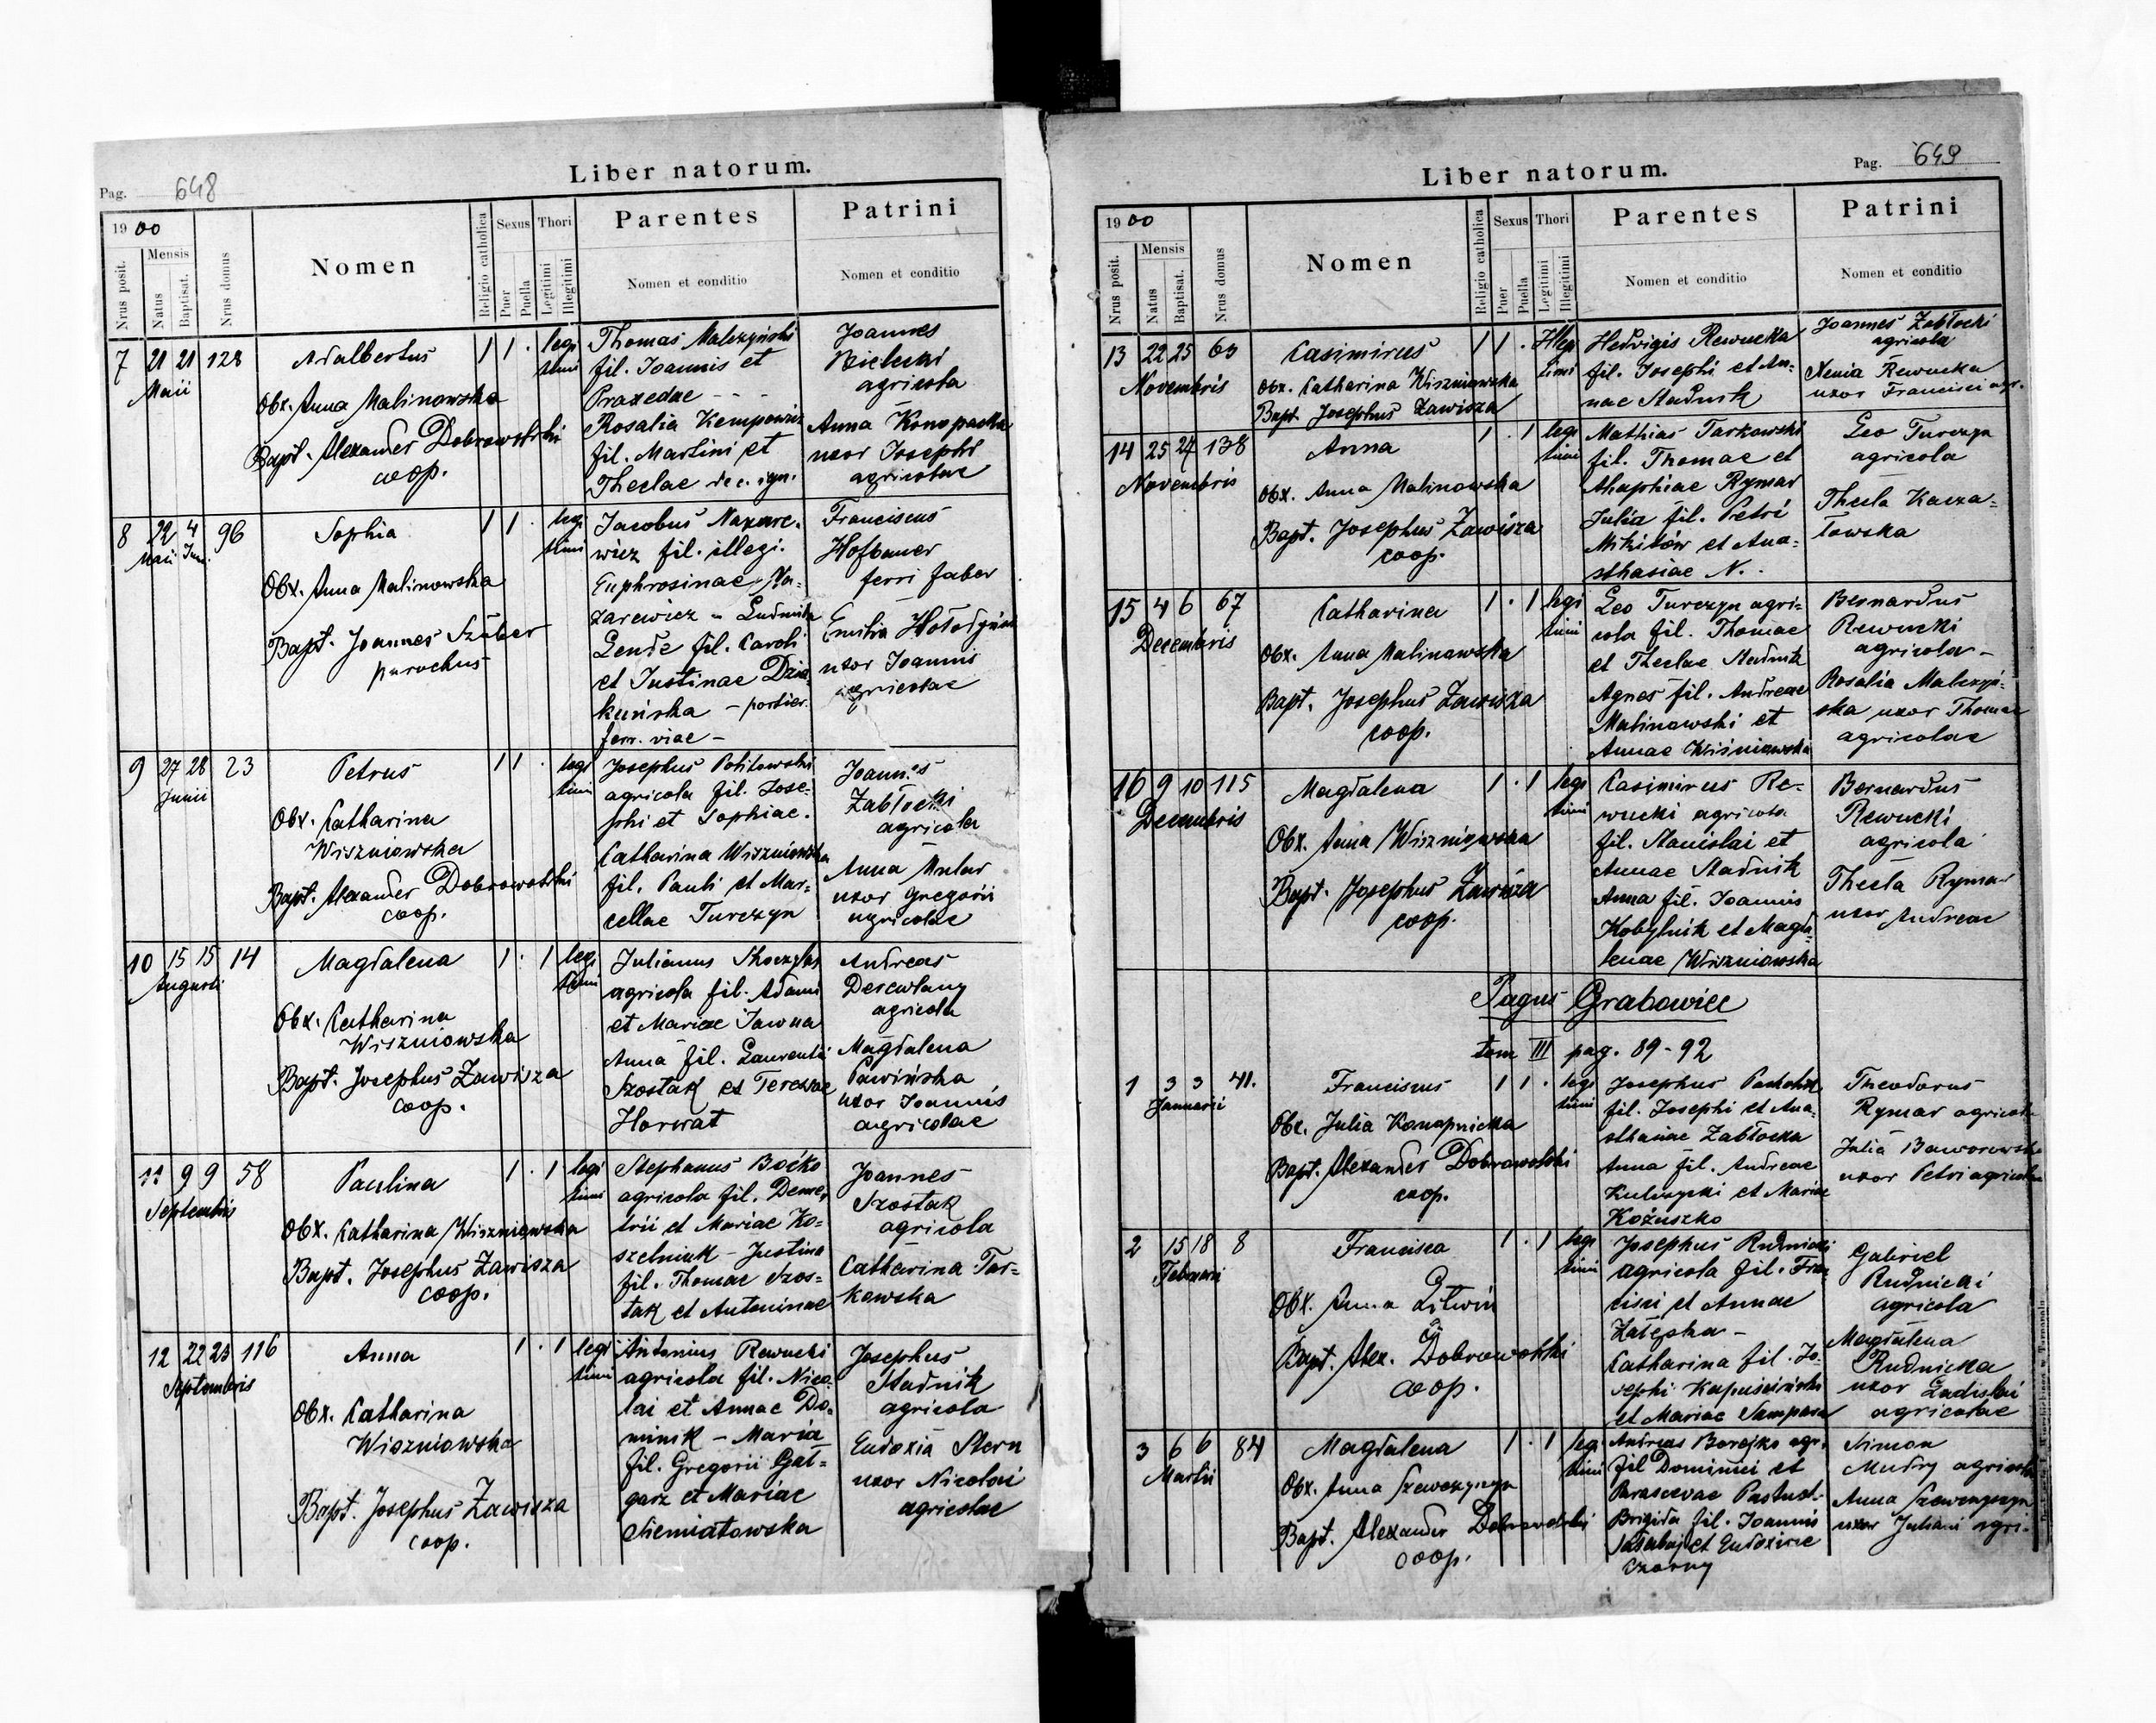 Pag. 648
Liber natorum.
1900
Nrus posit.
Mensis
Natus
Baptisat.
Nrus domus
Nomen
Religio catholica
Sexus
Puer
Puella
Thori
Legitimi
Illegitimi
Parentes
Nomen et conditio
Patrini
Nomen et conditio
7 21 21 128
Maii
Adalbertus
Obx. Anna Malinowska
Bapt. Alexander Dobrowolski
coop.
1 1 . legi
timi
Thomas Malczyński
fil. Joannis et
Praxedae - -
Rosalia Kempowicz
fil. Martini et
Theclae
Joannes
Bielecki
agricola
Anna Konopacka
uxor Josephi
agricolae
8 22 4 96
Maii Juni
Sophia
Obx. Anna Malinowska
Bapt. Joannes Szüber
parochus
1 1 . legi
timi
Jacobus Nazare-
wicz fil. illegi.
Euphrosinae Na-
zarewicz - Ludmila
Lende fil. Caroli
et Justinae Dzia-
kuńska - portier.
ferr. viae -
Franciscus
Hofbauer
ferri faber
Emilia
uxor Joannis
agricolae
9 27 28 23
Junii
Petrus
Obx. Catharina
Wiszniowska
Bapt. Alexander Dobrowolski
coop.
1 1 . legi
timi
Josephus Politowski
agricola fil. Jose-
phi et Sophiae.
Catharina Wiszniowska
fil. Pauli et Mar-
cellae Turczyn
Joannes
Zabłocki
agricola
Anna Mular
uxor Gregorii
agricolae
10 15 15 14
Augusti
Magdalena
Obx. Catharina
Wiszniowska
Bapt. Josephus Zawisza
coop.
1 . 1 legi
timi
Julianus Skoczylas
agricola fil. Adami
et Mariae Jawna
Anna fil. Laurentii
Szostak et Teressae
Horwat
Andreas
Derewlany
agricola
Magdalena
Pawińska
uxor Joannis
agricolae
11 9 9 58
Septembris
Paulina
Obx. Catharina Wiszniowska
Bapt. Josephus Zawisza
coop.
1 . 1 legi
timi
Stephanus Boćko
agricola fil. Deme-
trii et Mariae Ko-
szelniuk - Justina
fil. Thomae Szos-
tak et Antoninae
Joannes
Szostak
agricola
Catharina Tar-
kowska
12 22 23 116
Septembris
Anna
Obx. Catharina
Wiszniowska
Bapt. Josephus Zawisza
coop.
1 . 1 legi
timi
Antonius Rewucki
agricola fil. Nico-
lai et Annae Do-
minik - Maria
fil. Gregorii Gał-
garz et Mariae
Siemiatowska
Josephus
Stadnik
agricola
Eudoxia Stern
uxor Nicolai
agricolae
Liber natorum.
Pag. 649
1900
Nrus posit.
Mensis
Natus
Baptisat.
Nrus domus
Nomen
Religio catholica
Sexus
Puer
Puella
Thori
Legitimi
Illegitimi
Parentes
Nomen et conditio
Patrini
Nomen et conditio
13 22 25 63
Novembris
Casimirus
Obx. Catharina Wiszniowska
Bapt. Josephus Zawisza
1 1 . Illegi
timi
Hedvigis Rewucka
fil. Josephi et An-
nae Stadnik
Joannes Zabłocki
agricola
Xenia Rewucka
uxor Francisci agr.
14 25 27 138
Novembris
Anna
Obx. Anna Malinowska
Bapt. Josephus Zawisza
coop.
1 . 1 legi
timi
Mathias Tarkowski
fil. Thomae et
Ahaphiae Rymar
Julia fil. Petri
Mikitów et Ana-
sthasiae N.
Leo Turczyn
agricola
Thecla Kacza-
łowska
15 4 6 67
Decembris
Catharina
Obx. Anna Malinowska
Bapt. Josephus Zawisza
coop.
1 . 1 legi
timi
Leo Turczyn agri-
cola fil. Thomae
et Theclae Stadnik
Agnes fil. Andreae
Malinowski et
Annae Wiśniowska
Bernardus
Rewucki
agricola -
Rosalia Malczyń-
ska uxor Thomae
agricolae
16 9 10 115
Decembris
Magdalena
Obx. Anna Wiszniowska
Bapt. Josephus Zawisza
coop.
1 . 1 legi
timi
Casimirus Re-
wucki agricola
fil. Stanislai et
Annae Stadnik
Anna fil. Joannis
Kobylnik et Magda-
lenae Wiszniowska
Bernardus
Rewucki
agricola
Thecla Rymar
uxor Andreae
Pagus Grabowiec
tom III pag. 89-92
1 3 3 41.
Januarii
Franciscus
Obx. Julia Konopnicka
Bapt. Alexander Dobrowolski
coop.
1 1 . legi
timi
Josephus
fil. Josephi et Ana-
sthasiae Zabłocka
Anna fil. Andreae
Kulczycki et Mariae
Kożuszko
Theodorus
Rymar agricola
Julia Baworowska
uxor Petri agricolae
2 15 18 8
Februarii
Francisca
Obx. Anna Litwin
Bapt. Alex. Dobrowolski
coop.
1 . 1 legi
timi
Josephus Rudnicki
agricola fil. Fran-
cisci et Annae
Załęska -
Catharina fil. Jo-
sephi Kapuścińska
et Mariae Sampara
Gabriel
Rudnicki
agricola
Magdalena
Rudnicka
uxor Ladislai
agricolae
3 6 6 84
Martii
Magdalena
Obx. Anna Szewczyszyn
Bapt. Alexander Dobrowolski
coop.
1 . 1 legi
timi
Andreas Borejko agr.
fil Dominici et
Parascevae Pastuch
Brigida fil. Joannis
et Eudoxiae
Czorny
Simon
Mudry agricola
Anna Szewczyszyn
uxor Juliani agri.